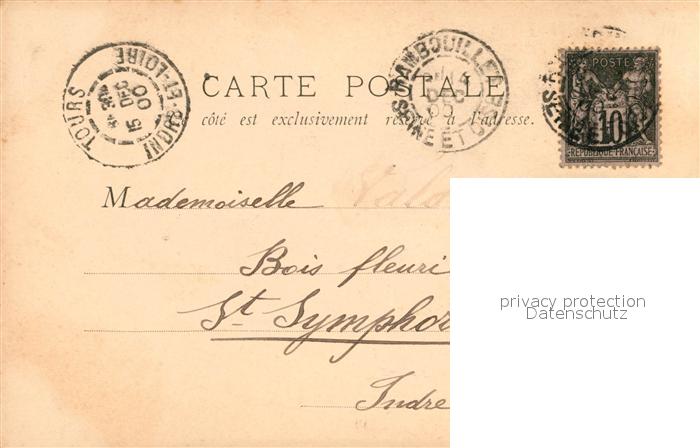 TOURS INDRE-ET-LOIRE
15
DEC
00
CARTE POSTALE
côté est exclusivement réservé à l'adresse.
RAMBOUILLET
DEC
POSTE
10
REPUBLIQUE FRANÇAISE
Mademoiselle
Bois fleuri
St Symphor
Indre
privacy protection
Datenschutz